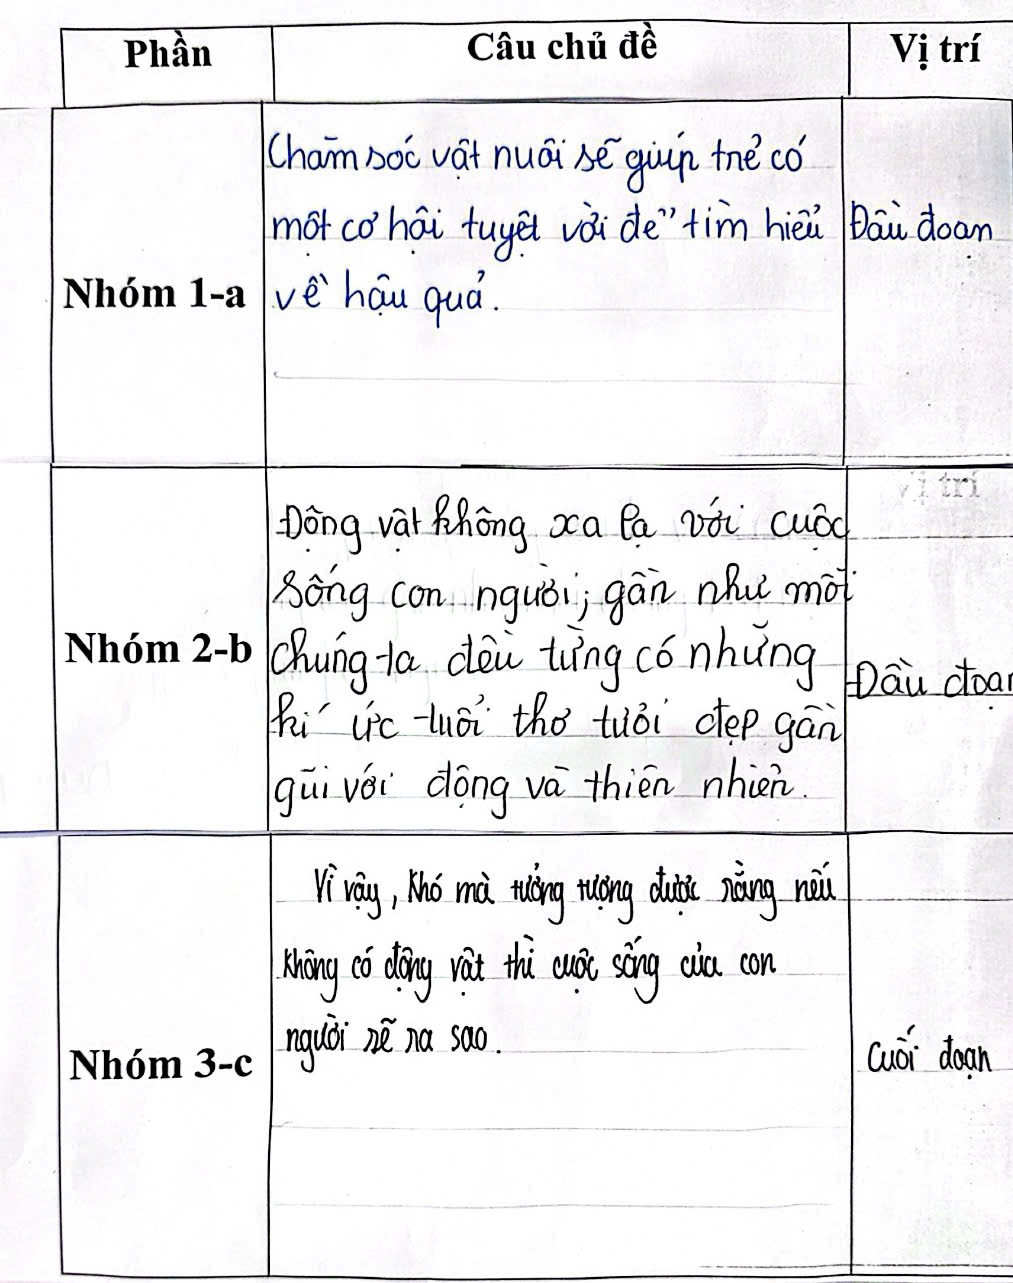 Phần Câu chủ đề Vị trí
Nhóm 1-a
Chăm sóc vật nuôi sẽ giúp trẻ có
một cơ hội tuyệt vời để tìm hiểu
về hậu quả.
Đầu đoạn
Nhóm 2-b
Động vật không xa lạ với cuộc
sống con người; gần như mỗi
chúng ta đều từng có những
kí ức tuổi thơ tươi đẹp gần
gũi với động và thiên nhiên.
Đầu đoạn
vị trí
Nhóm 3-c
Vì vậy, khó mà tưởng tượng được rằng nếu
không có động vật thì cuộc sống của con
người sẽ ra sao.
Cuối đoạn